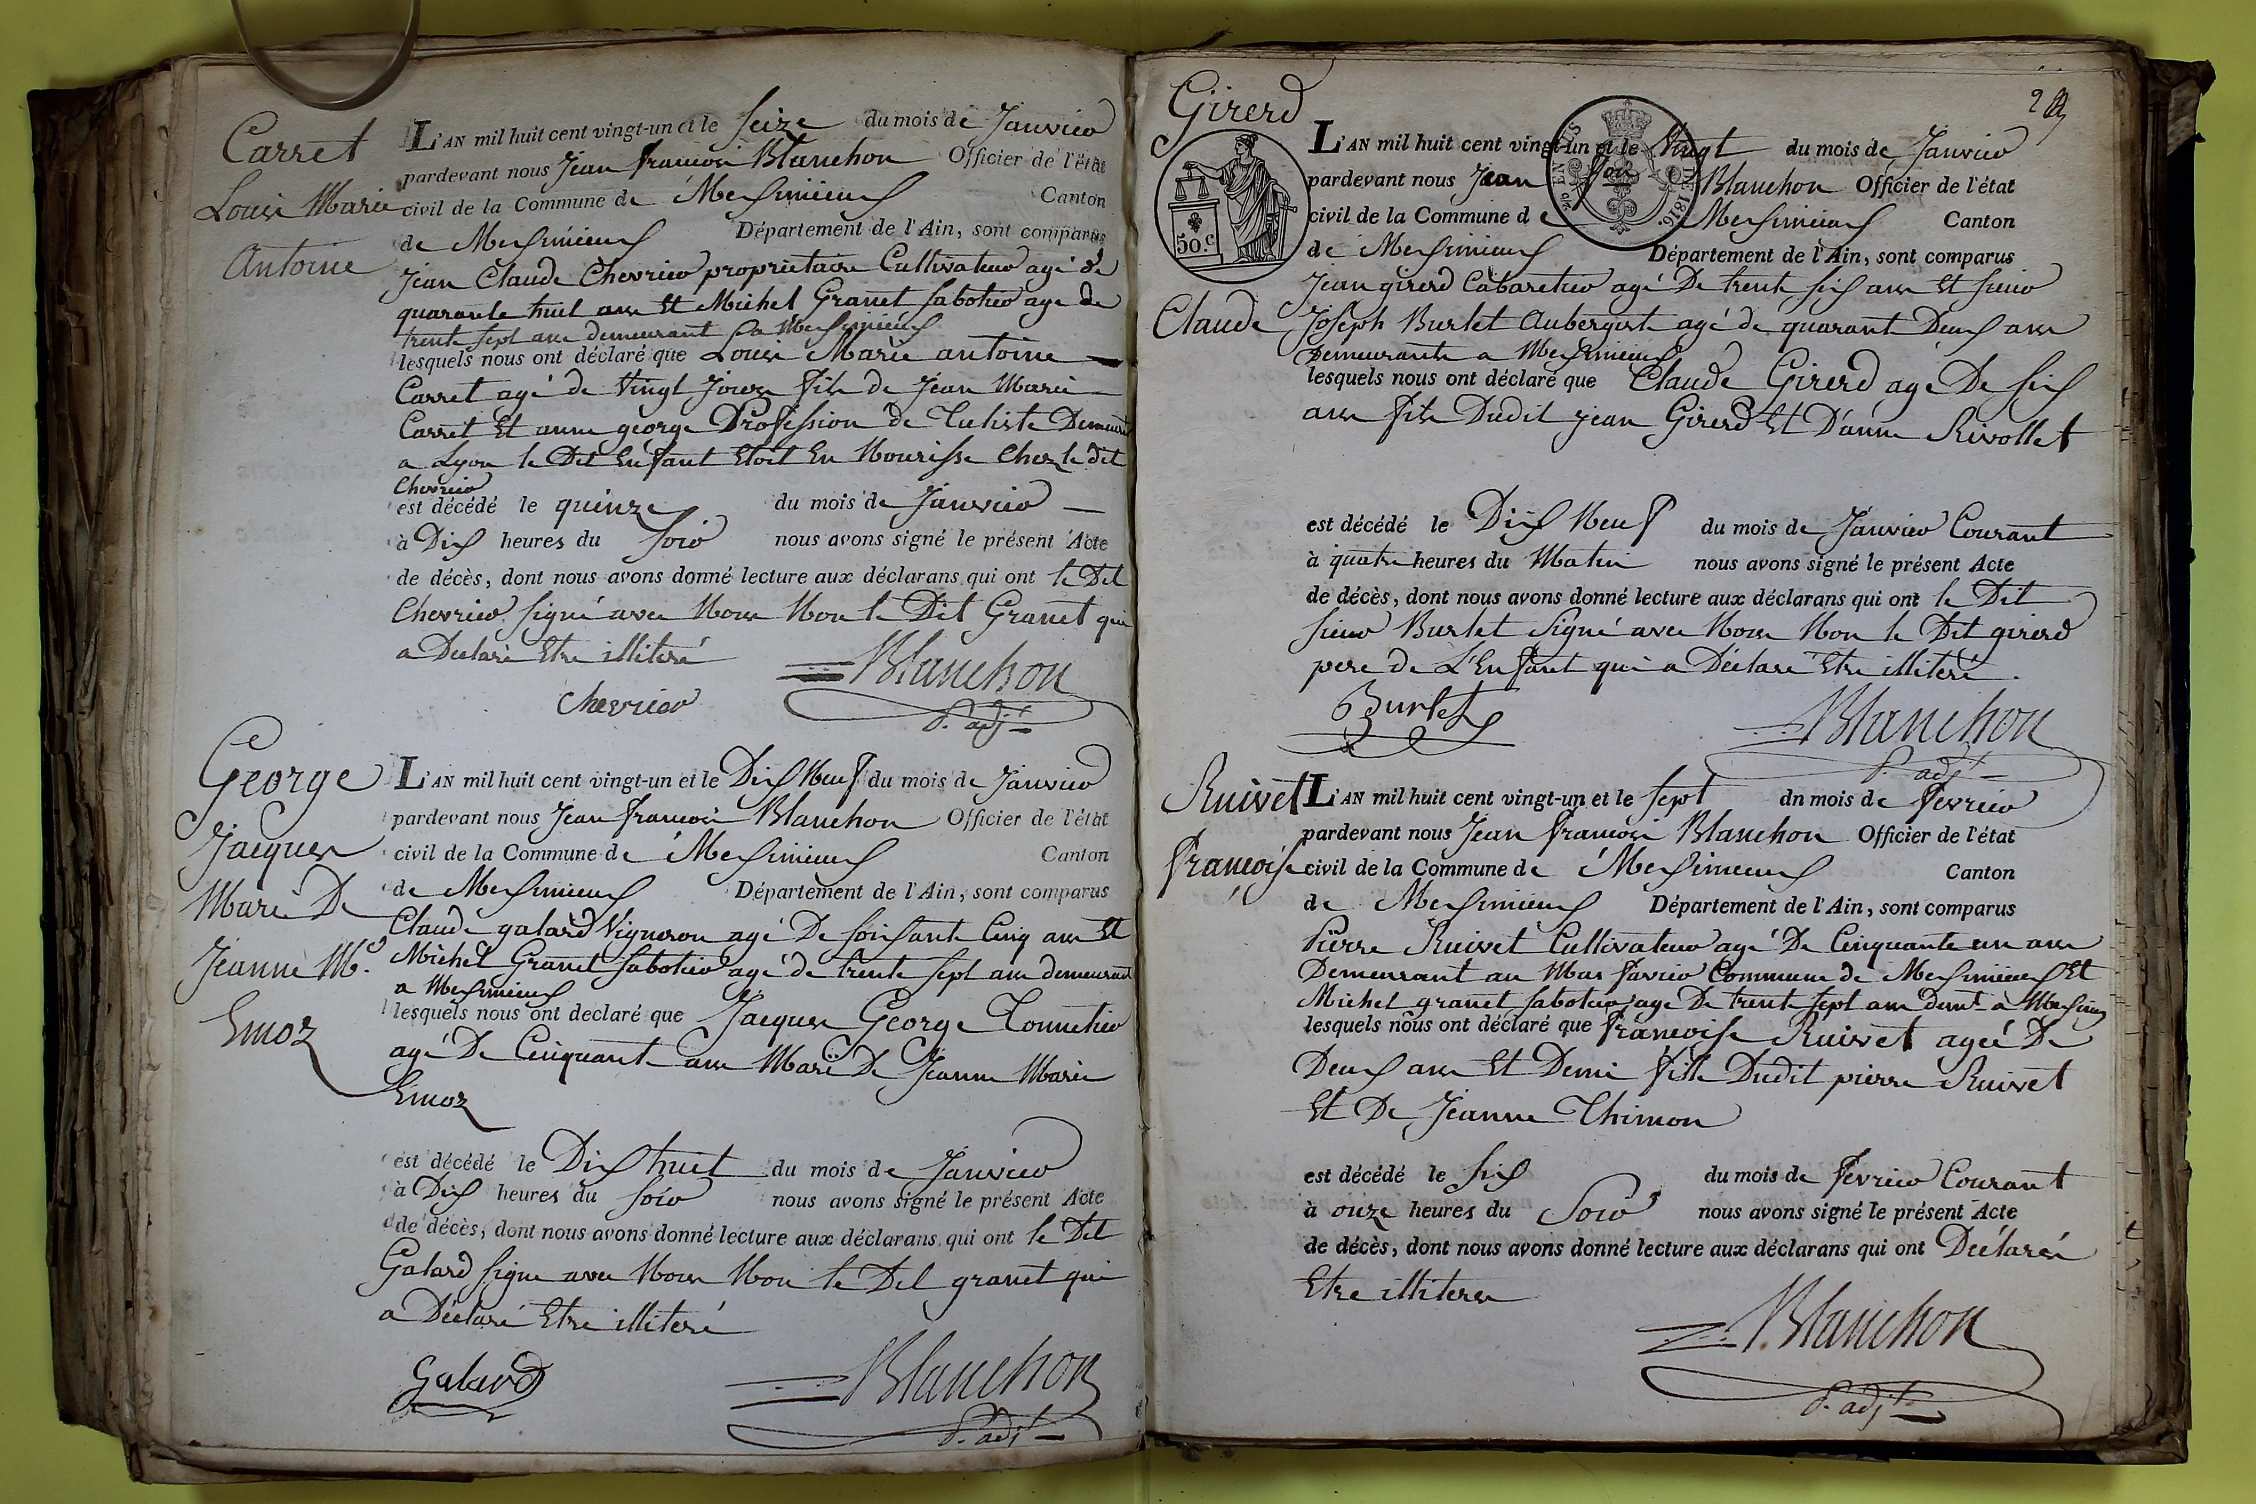 Carret
Louis Marie
Antoine
L'AN mil huit cent vingt-un et le Seize du mois de Janvier
pardevant nous Jean françois Blanchon Officier de l'état
civil de la Commune de Messimieux Canton
de Messimieux Département de l'Ain, sont comparus
Jean Claude Chevrier proprietaire Cultivateur agé de
quarante huit ans Et Michel Granet Sabotier agé de
trente sept ans demeurant a Messimieux
lesquels nous ont déclaré que Louis Marie antoine
Carret agé de Vingt Jours fils de Jean Marie
Carret Et anne george Profession de Tuliste Demeurt
a Lyon le Dit Enfant Etoit En Nourisse Chez le dit
Chevrier
est décédé le quinze du mois de Janvier
à Dix heures du Soir nous avons signé le présent Acte
de décès, dont nous avons donné lecture aux déclarans qui ont le Dit
Chevrier Signé avec Nous Non le Dit Granet qui
a Declaré Etre illiteré
Blanchon
Chevrier
P. adjt
George
Jacques
Marié De
Jeanne Me.
Emoz
L'AN mil huit cent vingt-un et le Dix Neuf du mois de Janvier
pardevant nous Jean françois Blanchon Officier de l'état
civil de la Commune de Messimieux Canton
de Messimieux Département de l'Ain, sont comparus
Claude galard Vigneron agé De Soissante Cinq ans Et
Michel Granet Sabotier agé de trente sept ans demeurant
a Messimieux
lesquels nous ont declaré que Jacques George Tonnelier
agé De Cinquante ans Marié De Jeanne Marie
Emoz
est décédé le Dix huit du mois de Janvier
à Dix heures du Soir nous avons signé le présent Acte
de décès, dont nous avons donné lecture aux déclarans qui ont le Dit
Galard Signé avec Nous Non le Dit granet qui
a Déclaré Etre illiteré
Galard
Blanchon
P. adjt
Girerd
Claude
50.c
DE 1816.
L'AN mil huit cent vingt-un et le Vingt du mois de Janvier
pardevant nous Jean fois Blanchon Officier de l'état
civil de la Commune de Messimieux Canton
de Messimieux Département de l'Ain, sont comparus
Jean girerd Cabaretier agé De trente six ans Et Sieur
Joseph Burlet Aubergiste agé de quarant Deux ans
Demeurants a Messimieux
lesquels nous ont déclaré que Claude Girerd agé De six
ans fils Dudit jean Girerd Et D'anne Rivollet
est décédé le Dix Neuf du mois de Janvier Courant
à quatre heures du Matin nous avons signé le présent Acte
de décès, dont nous avons donné lecture aux déclarans qui ont le Dit
Sieur Burlet Signé avec Nous Non le Dit girerd
pere de L'Enfant qui a Déclaré Etre illiteré.
Burlet
Blanchon
P. adjt
Ruivet
françoise
L'AN mil huit cent vingt-un et le Sept dn mois de fevrier
pardevant nous Jean françois Blanchon Officier de l'état
civil de la Commune de Messimieux Canton
de Messimieux Département de l'Ain, sont comparus
Pierre Ruivet Cultivateur agé De Cinquante un ans
Demeurant au Mas Commune de Messimieux Et
Michel granet Sabotier agé De trente sept ans demt a Messimx
lesquels nous ont déclaré que françoise Ruivet ageé De
Deux ans Et Demi fille Dudit pierre Ruivet
Et De Jeanne Thimon
est décédé le Six du mois de fevrier Courant
à onze heures du Soir nous avons signé le présent Acte
de décès, dont nous avons donné lecture aux déclarans qui ont Déclaré
Etre illiteres
Blanchon
P. adjt